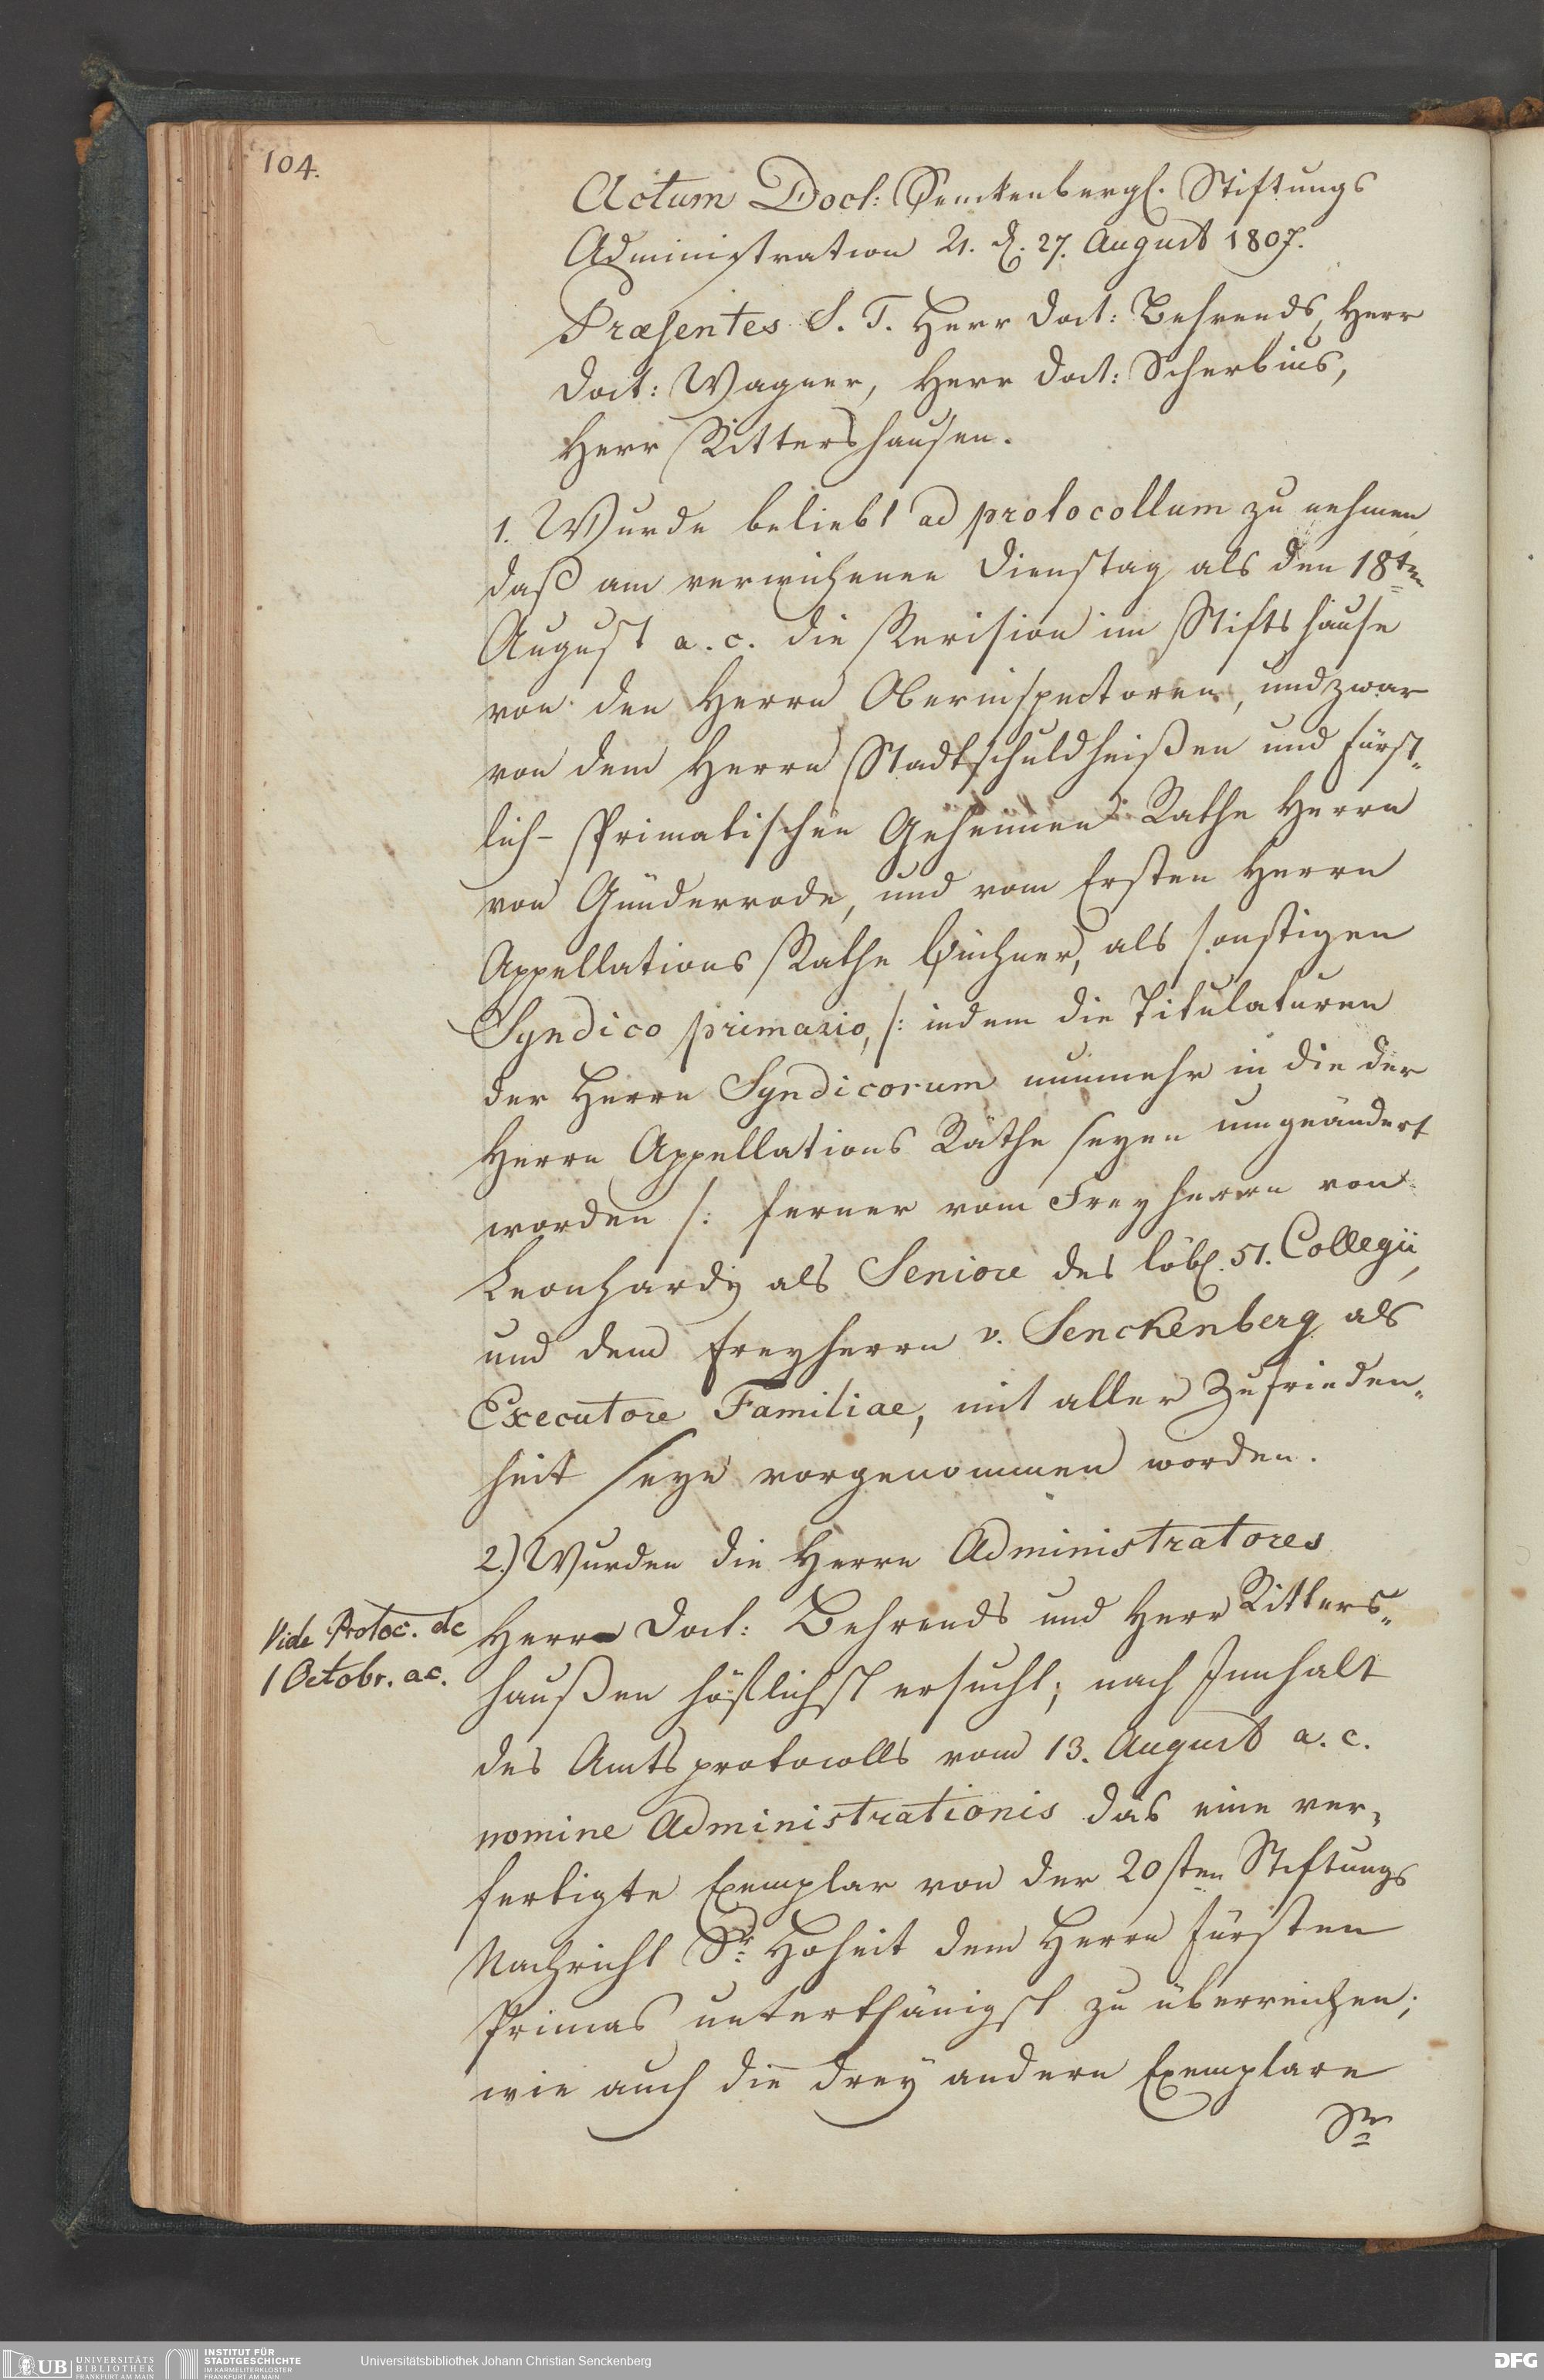 104.
Actum Doct: Senckenbergl. Stiftungs
Administration 21. d. 27. August 1807.
Præsentes S. T. Herr Doct: Behrends, Herr
Doct: Wagner, Herr Doct: Scherbius,
Herr Rittershausen.
1. Wurde beliebt ad protocollum zu nehmen,
daß am verwichenen Dienstag als den 18ten
August a. c. die Revision im Stiftshause
von den Herrn Oberinspectoren, und zwar
von dem Herrn Stadtschuldheißen und Fürst„
lich-Primatischen Geheimen Rathe Herrn
von Günderrode, und vom Ersten Herrn
Appellations Rathe Büchner, als sonstigen
Syndico primario, /: indem die Titulaturen
der Herrn Syndicorum nunmehr in die der
Herrn Appellations Räthe seyen umgeändert
worden /: ferner vom Freyherrn von
Leonhardy als Seniore des löbl. 51. Collegii,
und dem Freyherrn v. Senckenberg als
Executore Familiae, mit aller Zufrieden„
heit seye vorgenommen worden.
2.) Wurden die Herrn Administratores
Vide Protoc. de
1 Octobr. a c.
Herr Doct: Behrends und Herr Ritters„
haußen höflichst ersucht; nach Innhalt
des Amtsprotocolls vom 13. August a. c.
nomine Administrationis das eine ver„
fertigte Exemplar von der 20sten Stiftungs
Nachricht Sr. Hoheit dem Herrn Fürsten
Primas unterthänigst zu überreichen;
wie auch die drey andern Exemplare
Sr
UB UNIVERSITÄTS
BIBLIOTHEK
FRANKFURT AM MAIN
INSTITUT FÜR
STADTGESCHICHTE
IM KARMELITERKLOSTER
FRANKFURT AM MAIN
Universitätsbibliothek Johann Christian Senckenberg
DFG